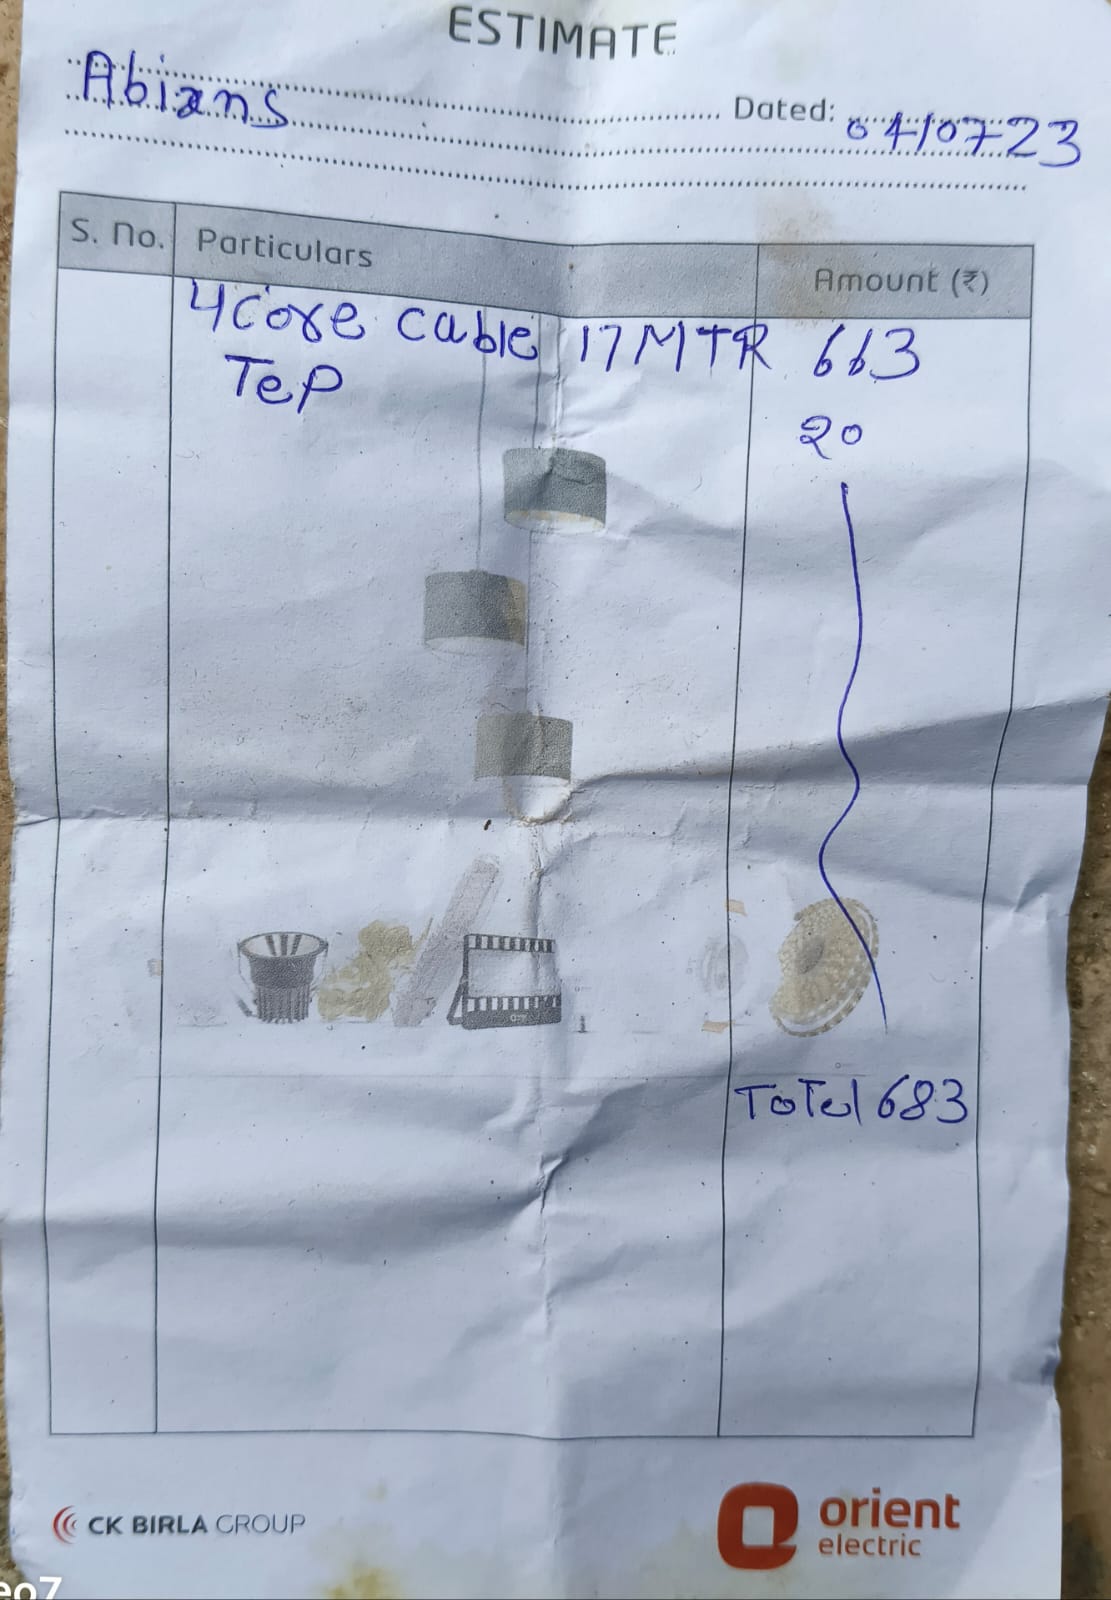 ESTIMATE
Abians
Dated: 04/07-23
S. No. Particulars Amount (₹)
4 Core cable 17 MTR 663
TeP २०
ToTel 683
CK BIRLA GROUP
orient
electric
eo7